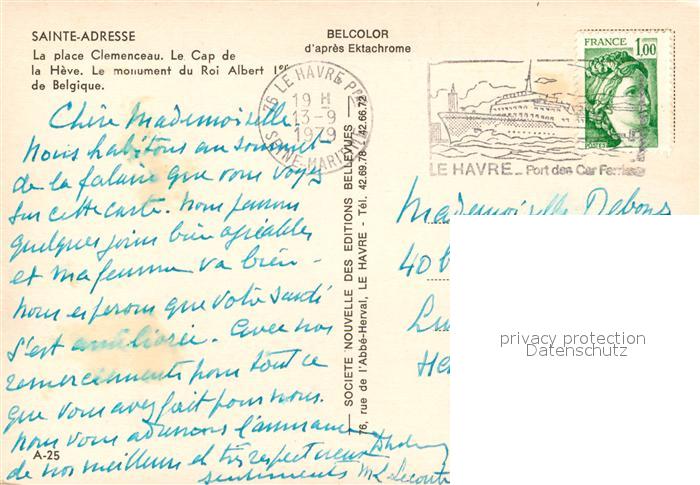 SAINTE-ADRESSE
La place Clemenceau. Le Cap de
la Hève. Le monument du Roi Albert Ier
de Belgique.
BELCOLOR
d'après Ektachrome
76 LE HAVRE Pal
19 H
13-9
1979
SEINE-MARITIME
LE HAVRE_ Port des Car Ferries
FRANCE 1,00
POSTES
Chère Mademoiselle.
Nous habitons au sommet
de la falaise que vous voyez
sur cette carte. Nous passons
quelques jours bien agréables
et ma femme va bien.
Nous esperons que votre santé
s'est améliorée. Avec nos
remerciements pour tout ce
que vous avez fait pour nous.
Nous vous adressons l'assurance
de nos meilleurs et très respectueux
sentiments M L Lecomte
A-25
SOCIÉTÉ NOUVELLE DES EDITIONS BELLEVUES
76, rue de l'Abbé-Herval, LE HAVRE - Tél. 42.69.78 - 42.66.72
Mademoiselle Debons
40 b
Lu
He
privacy protection
Datenschutz